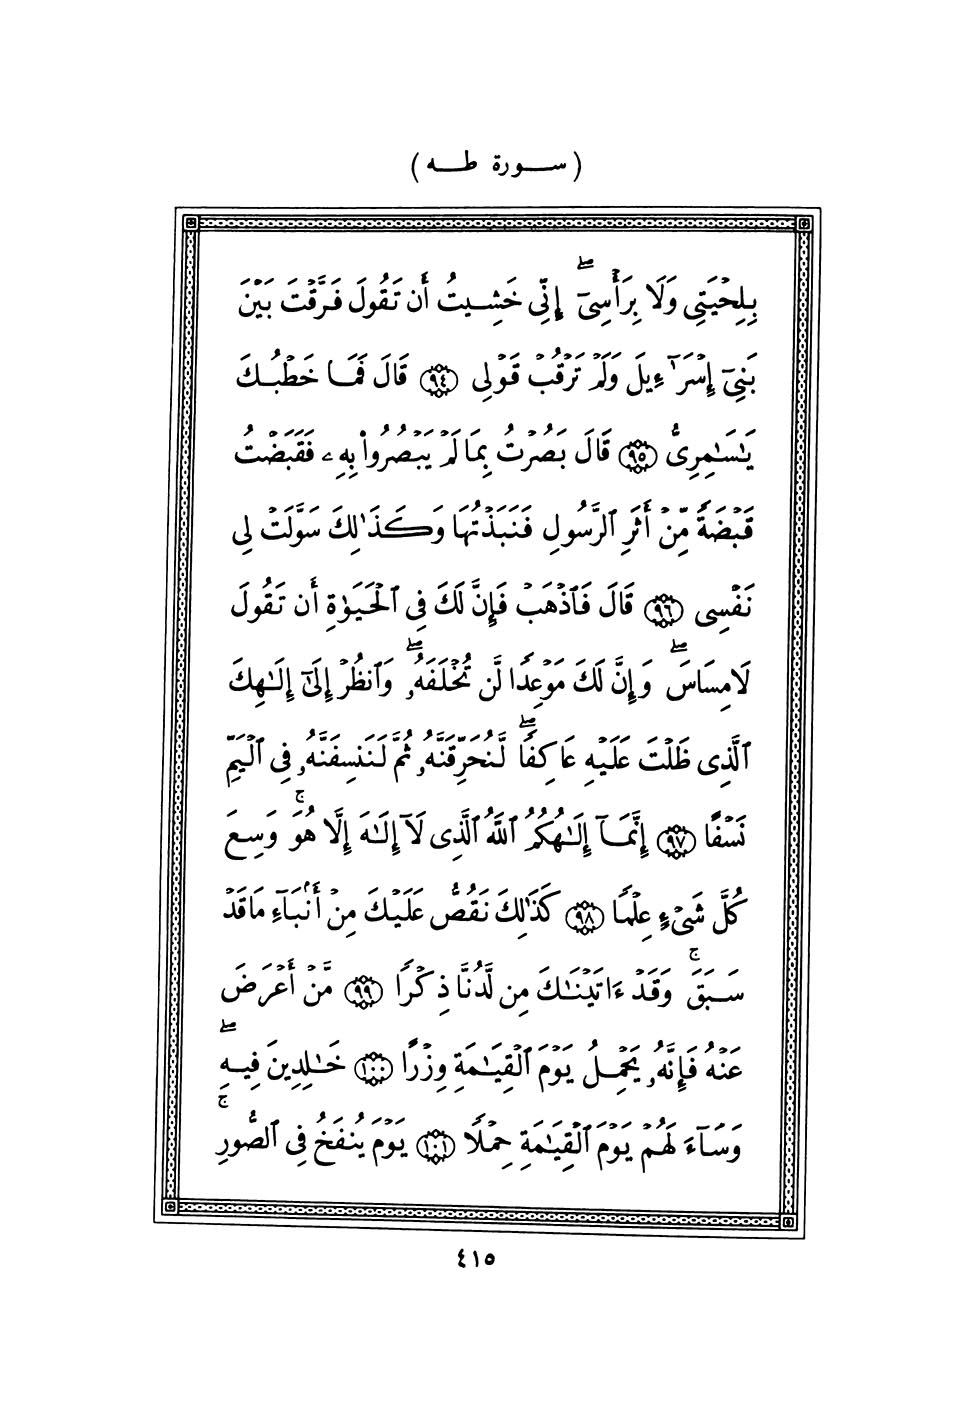 ( سورة طه )
بِلِحْيَتِى وَلَا بِرَأْسِىٓ ۖ إِنِّى خَشِيتُ أَن تَقُولَ فَرَّقْتَ بَيْنَ
بَنِىٓ إِسْرَٰٓءِيلَ وَلَمْ تَرْقُبْ قَوْلِى ٩٤ قَالَ فَمَا خَطْبُكَ
يَٰسَٰمِرِىُّ ٩٥ قَالَ بَصُرْتُ بِمَا لَمْ يَبْصُرُوا۟ بِهِۦ فَقَبَضْتُ
قَبْضَةً مِّنْ أَثَرِ ٱلرَّسُولِ فَنَبَذْتُهَا وَكَذَٰلِكَ سَوَّلَتْ لِى
نَفْسِى ٩٦ قَالَ فَٱذْهَبْ فَإِنَّ لَكَ فِى ٱلْحَيَوٰةِ أَن تَقُولَ
لَا مِسَاسَ ۖ وَإِنَّ لَكَ مَوْعِدًا لَّن تُخْلَفَهُۥ ۖ وَٱنظُرْ إِلَىٰٓ إِلَٰهِكَ
ٱلَّذِى ظَلْتَ عَلَيْهِ عَاكِفًا ۖ لَّنُحَرِّقَنَّهُۥ ثُمَّ لَنَنسِفَنَّهُۥ فِى ٱلْيَمِّ
نَسْفًا ٩٧ إِنَّمَآ إِلَٰهُكُمُ ٱللَّهُ ٱلَّذِى لَآ إِلَٰهَ إِلَّا هُوَ ۚ وَسِعَ
كُلَّ شَىْءٍ عِلْمًا ٩٨ كَذَٰلِكَ نَقُصُّ عَلَيْكَ مِنْ أَنۢبَآءِ مَا قَدْ
سَبَقَ ۚ وَقَدْ ءَاتَيْنَٰكَ مِن لَّدُنَّا ذِكْرًا ٩٩ مَّنْ أَعْرَضَ
عَنْهُ فَإِنَّهُۥ يَحْمِلُ يَوْمَ ٱلْقِيَٰمَةِ وِزْرًا ١٠٠ خَٰلِدِينَ فِيهِ ۖ
وَسَآءَ لَهُمْ يَوْمَ ٱلْقِيَٰمَةِ حِمْلًا ١٠١ يَوْمَ يُنفَخُ فِى ٱلصُّورِ ۚ
٤١٥